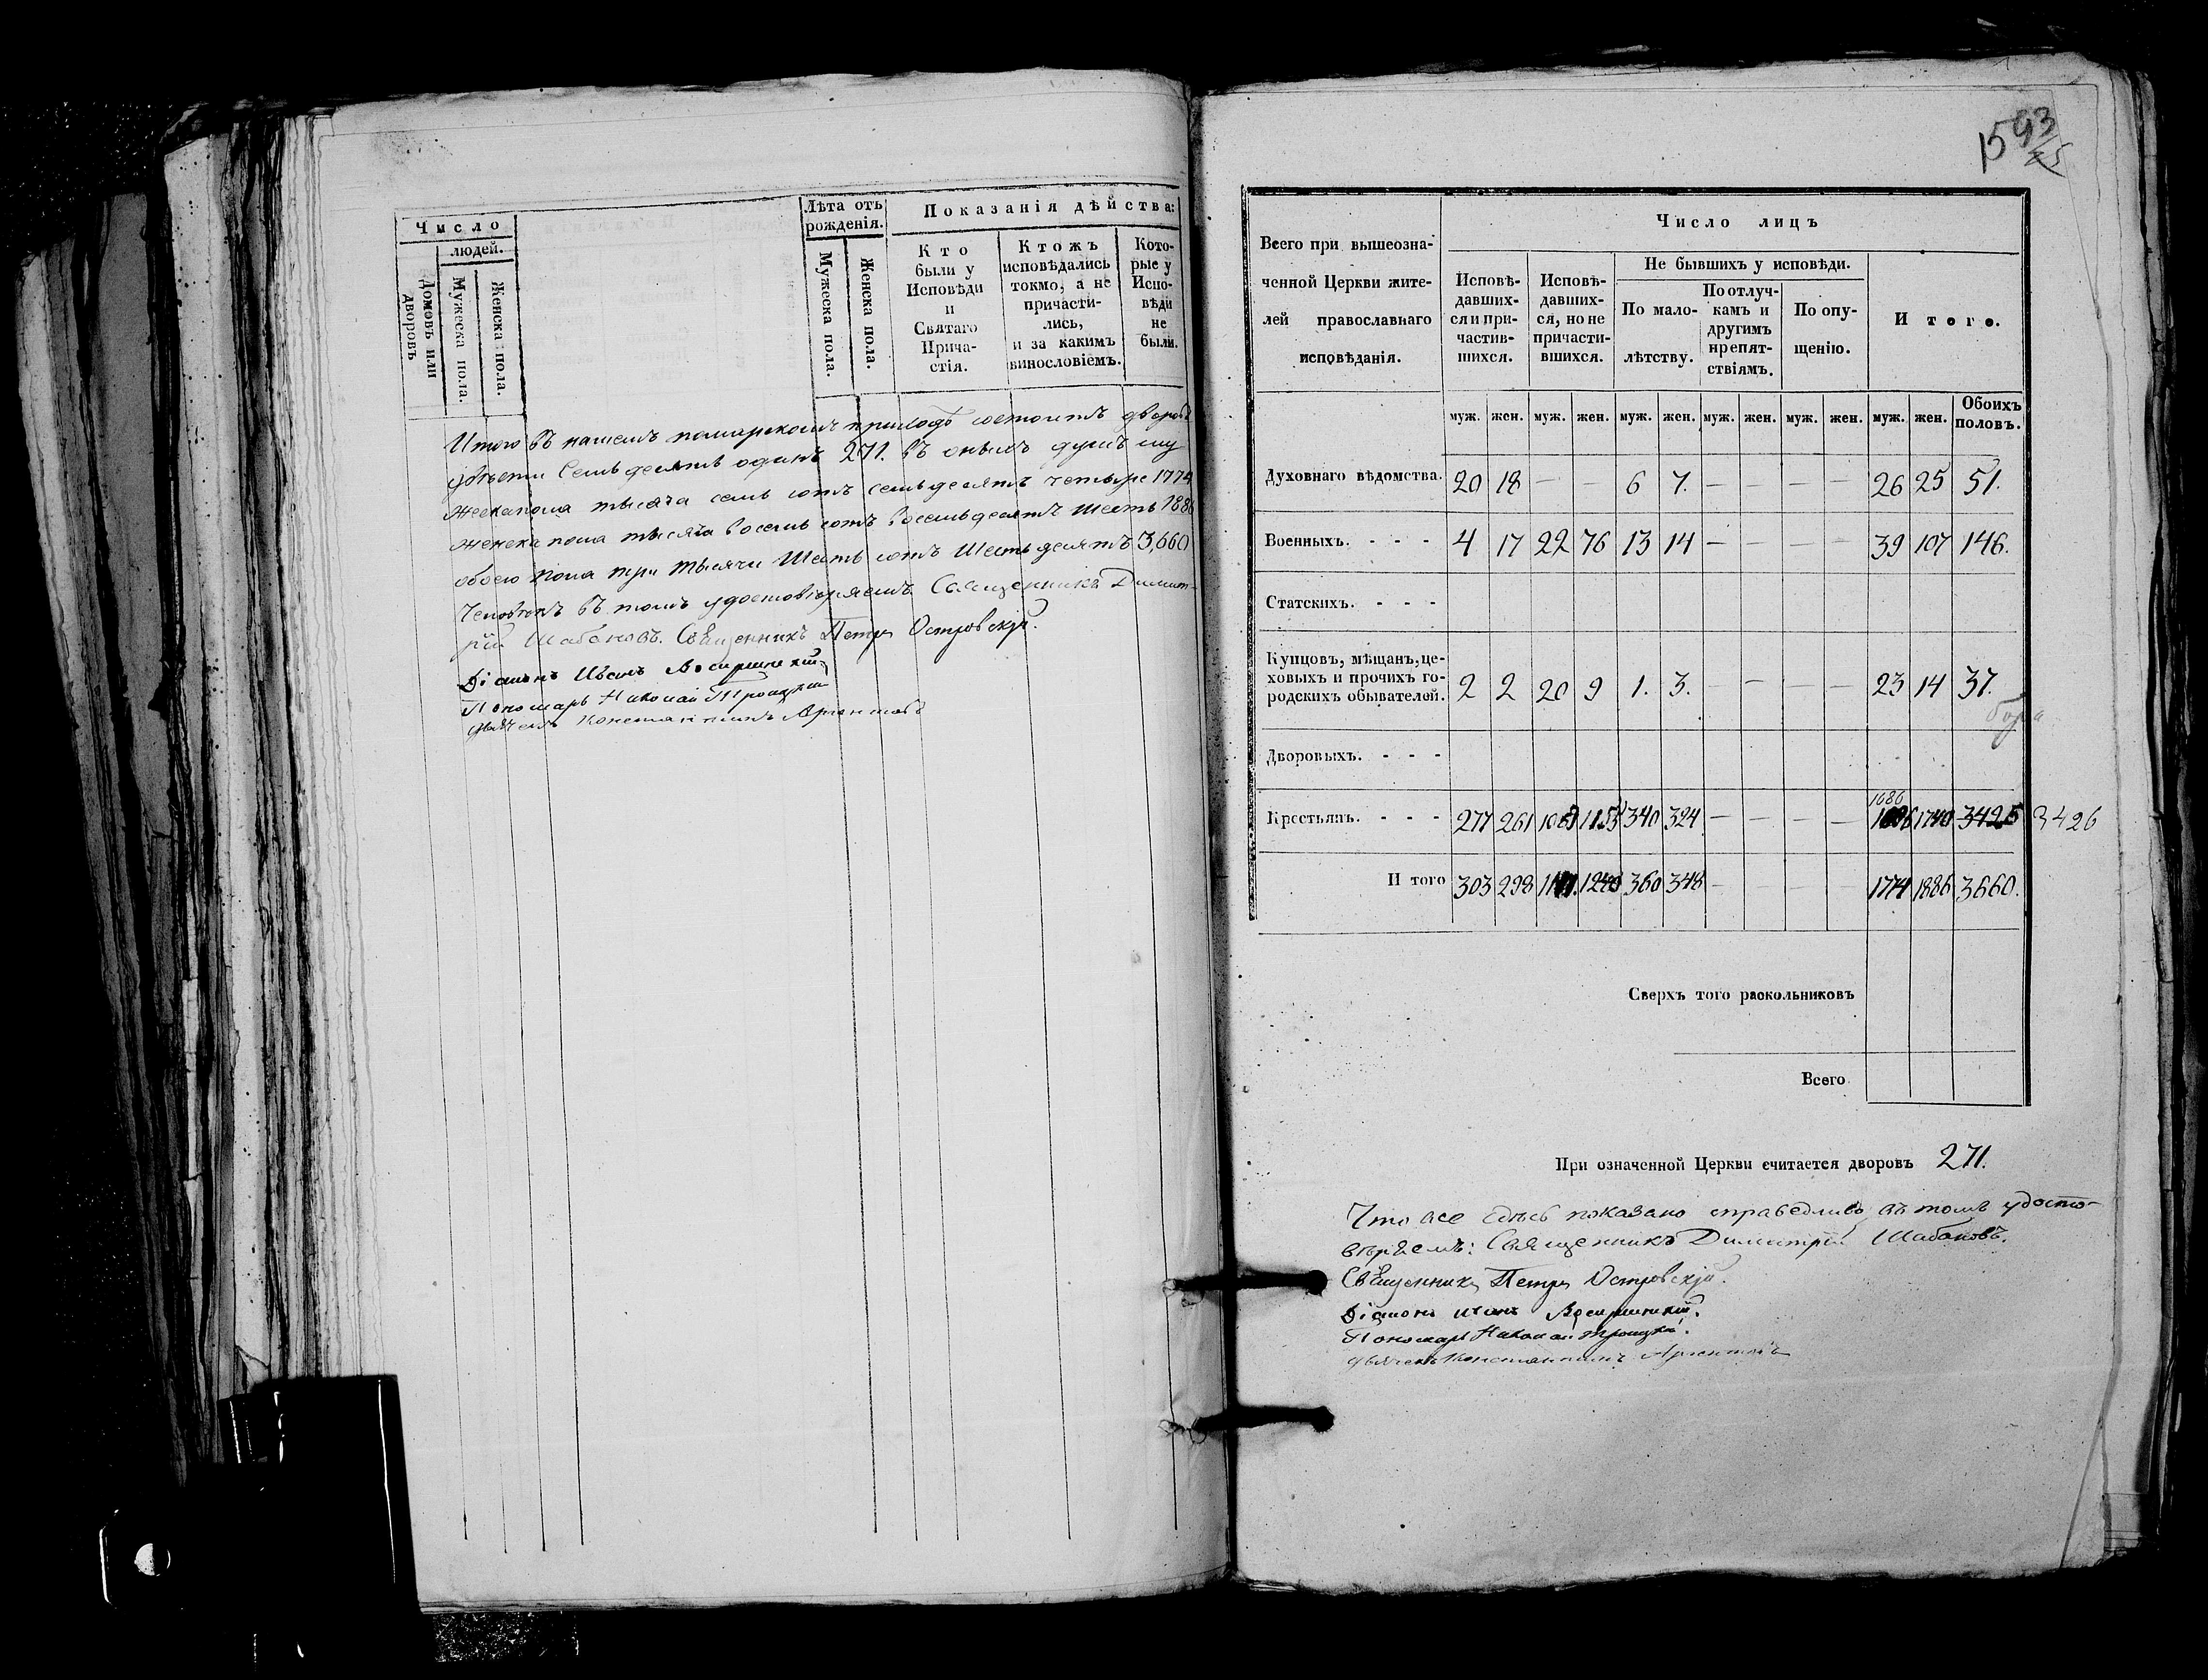 Число
людей.
Домовъ или дворовъ
Мужеска пола.
Женска пола.
Лѣта отъ рожденія.
Мужеска пола.
Женска пола.
Показанія дѣйства:
Кто были у Исповѣди и Святаго Прича- стія.
Ктожъ исповѣдались токмо, а не причасти- лись, и за какимъ винословіемъ.
Кото- рые у Испо- вѣди не были.
Итого въ нашемъ приходѣ состоитъ дворовъ
двѣсти семьдесятъ одинъ 271. въ оныхъ душъ му
жеска пола тысяча семь сотъ семьдесятъ четыре 1774
женска пола тысяча восемь сотъ восемьдесятъ шесть 1886
обоего пола три тысячи шесть сотъ шестьдесятъ 3,660
человѣкъ въ томъ удостовѣряемъ Священникъ Димит-
рій Шабановъ. Священникъ Петръ Островскій.
Діаконъ Иванъ
Пономарь Николай Троицкій
Дьячекъ Константинъ
1593
Всего при вышеозна-
ченной Церкви жите-
лей православнаго
исповѣданія.
Число лицъ
Исповѣ- давших- ся и при- частив- шихся.
Исповѣ- давших- ся, но не причасти- вшихся.
Не бывшихъ у исповѣди.
По мало- лѣтству.
По отлуч- камъ и другимъ препят- ствіямъ.
По опу- щенію.
Итого.
муж. жен. муж. жен. муж. жен. муж. жен. муж. жен. муж. жен. Обоихъ половъ.
Духовнаго вѣдомства. 20 18 — — 6 7. — — — — 26 25 51.
Военныхъ. - - - 4 17 22 76 13 14 — — — — 39 107 146.
Статскихъ. - - -
Купцовъ, мѣщанъ, це-
ховыхъ и прочихъ го-
родскихъ обывателей. 2 2 20 9 1. 3. — — — — 23 14 37.
Дворовыхъ. - - -
1686
Крестьянъ. - - - 277 261 1155 340 324 — — — — 1740 3425 3426
И того 303 298 1240 360 348 — — — 1774 1886 3660.
Сверхъ того раскольниковъ
Всего
При означенной Церкви считается дворовъ 271.
Что все здѣсь показано справедливо въ томъ удосто-
вѣряемъ: Священникъ Димитрій Шабановъ.
Священникъ Петръ Островскій.
Діаконъ Иванъ
Пономарь Николай Троицкій.
Дьячекъ Константинъ